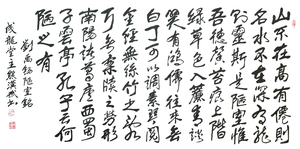 山不在高有僊則
名水不在深有龍
則靈斯是陋室惟
吾德馨苔痕上階
綠草色入簾青談
笑有鴻儒往來無
白丁可以調素琴閱
金經無絲竹之亂
耳無案牘之勞形
南陽諸葛廬西蜀
子雲亭孔子云何
陋之有
劉禹錫陋室銘
堂主